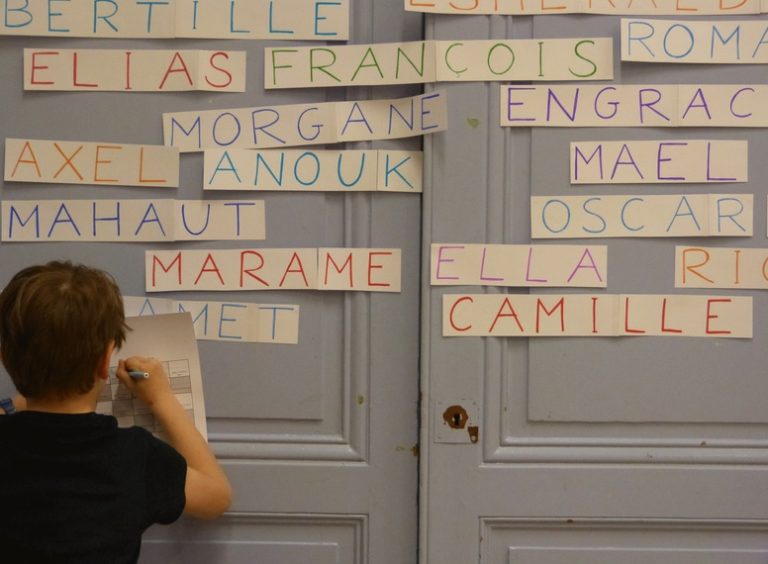 BERTILLE
ESMERALD
ELIAS
FRANÇOIS
ROMA
MORGANE
ENGRAC
AXEL
ANOUK
MAEL
MAHAUT
OSCAR
MARAME
ELLA
RIC
AMET
CAMILLE